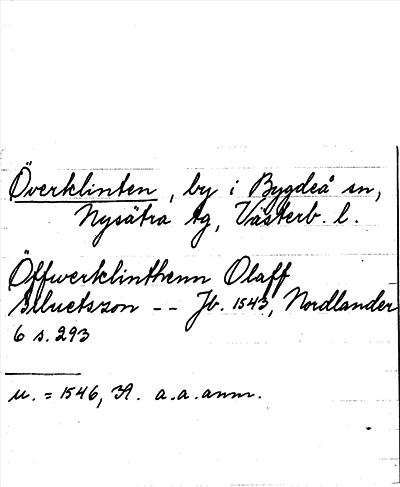 Överklinten, by i Bygdeå sn,
Nysätra tg, Västerb. l.
Öffwerklinthenn Olaff
Illuetszon -- Jb. 1543, Nordlander
6 s. 293
u. = 1546, a.a. anm.